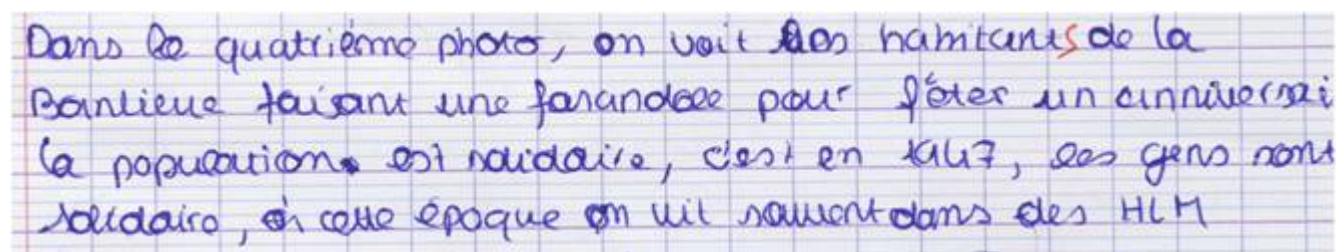 Dans la quatrième photo, on voit des habitants de la
Banlieue faisant une farandole pour fêter un anniversai
la population est solidaire, c'est en 1947, les gens sont
solidaire, à cette époque on vit souvent dans des HLM